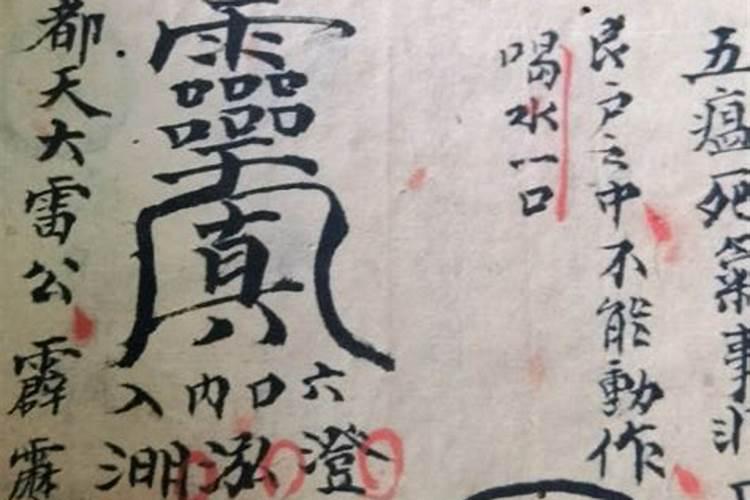 五瘟死氣事非
艮户之中不能動作
喝水一口
靈真
六口内入
澄泓
都天大雷公霹靂